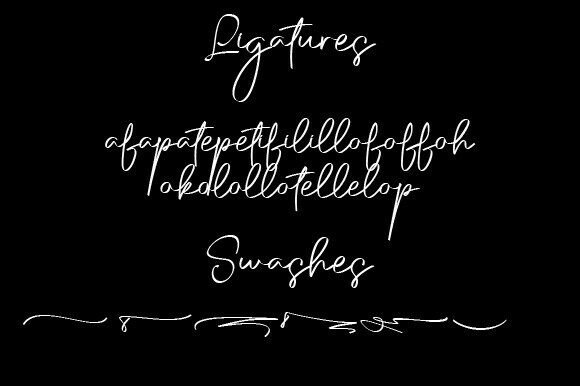 Ligatures
afapatepetifilillofoffoh
okalallotellelop
Swashes